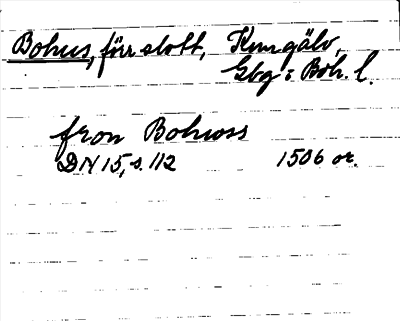 Bohus, förr slott, Kungälv,
Gbg o Boh. l.
fron Bohwss
DN 15, s. 112 1506 or.